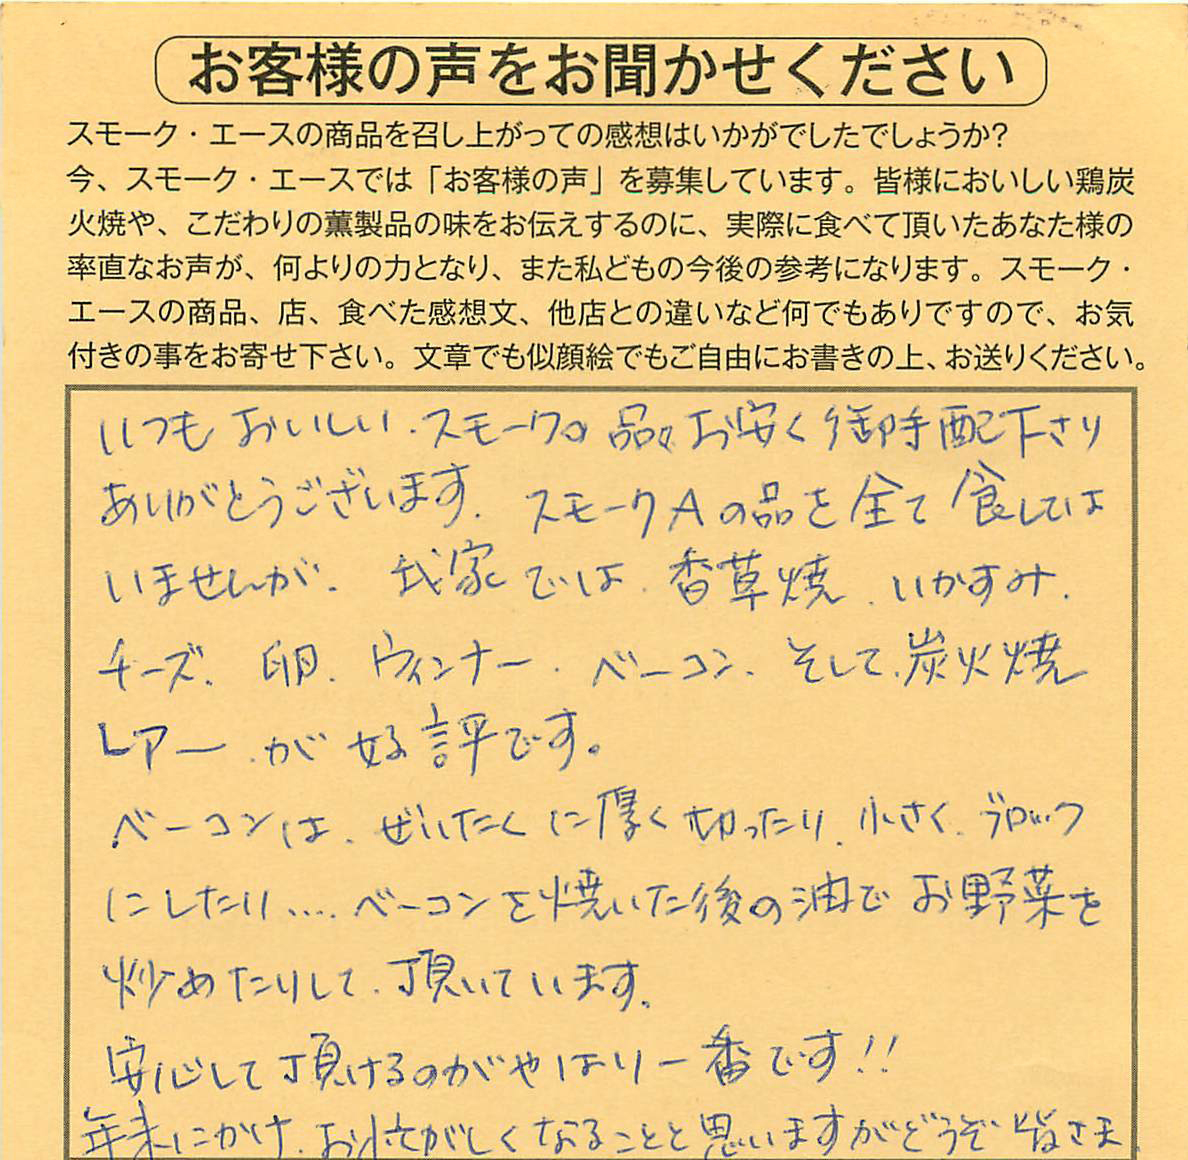 お客様の声をお聞かせください
スモーク・エースの商品を召し上がっての感想はいかがでしたでしょうか?
今、スモーク・エースでは「お客様の声」を募集しています。皆様においしい鶏炭
火焼や、こだわりの薫製品の味をお伝えするのに、実際に食べて頂いたあなた様の
率直なお声が、何よりの力となり、また私どもの今後の参考になります。スモーク・
エースの商品、店、食べた感想文、他店との違いなど何でもありですので、お気
付きの事をお寄せ下さい。文章でも似顔絵でもご自由にお書きの上、お送りください。
いつもおいしい、スモークの品々お安く御手配下さり
ありがとうございます。スモークAの品を全て食しては
いませんが、我家では、香草焼、いかすみ、
チーズ、卵、ウィンナー、ベーコン、そして、炭火焼
レアーが好評です。
ベーコンは、ぜいたくに厚く切ったり、小さく、ブロック
にしたり…、ベーコンを焼いた後の油でお野菜を
炒めたりして、頂いています。
安心して頂けるのがやはり一番です!!
年末にかけ、お忙がしくなることと思いますがどうぞ皆さま